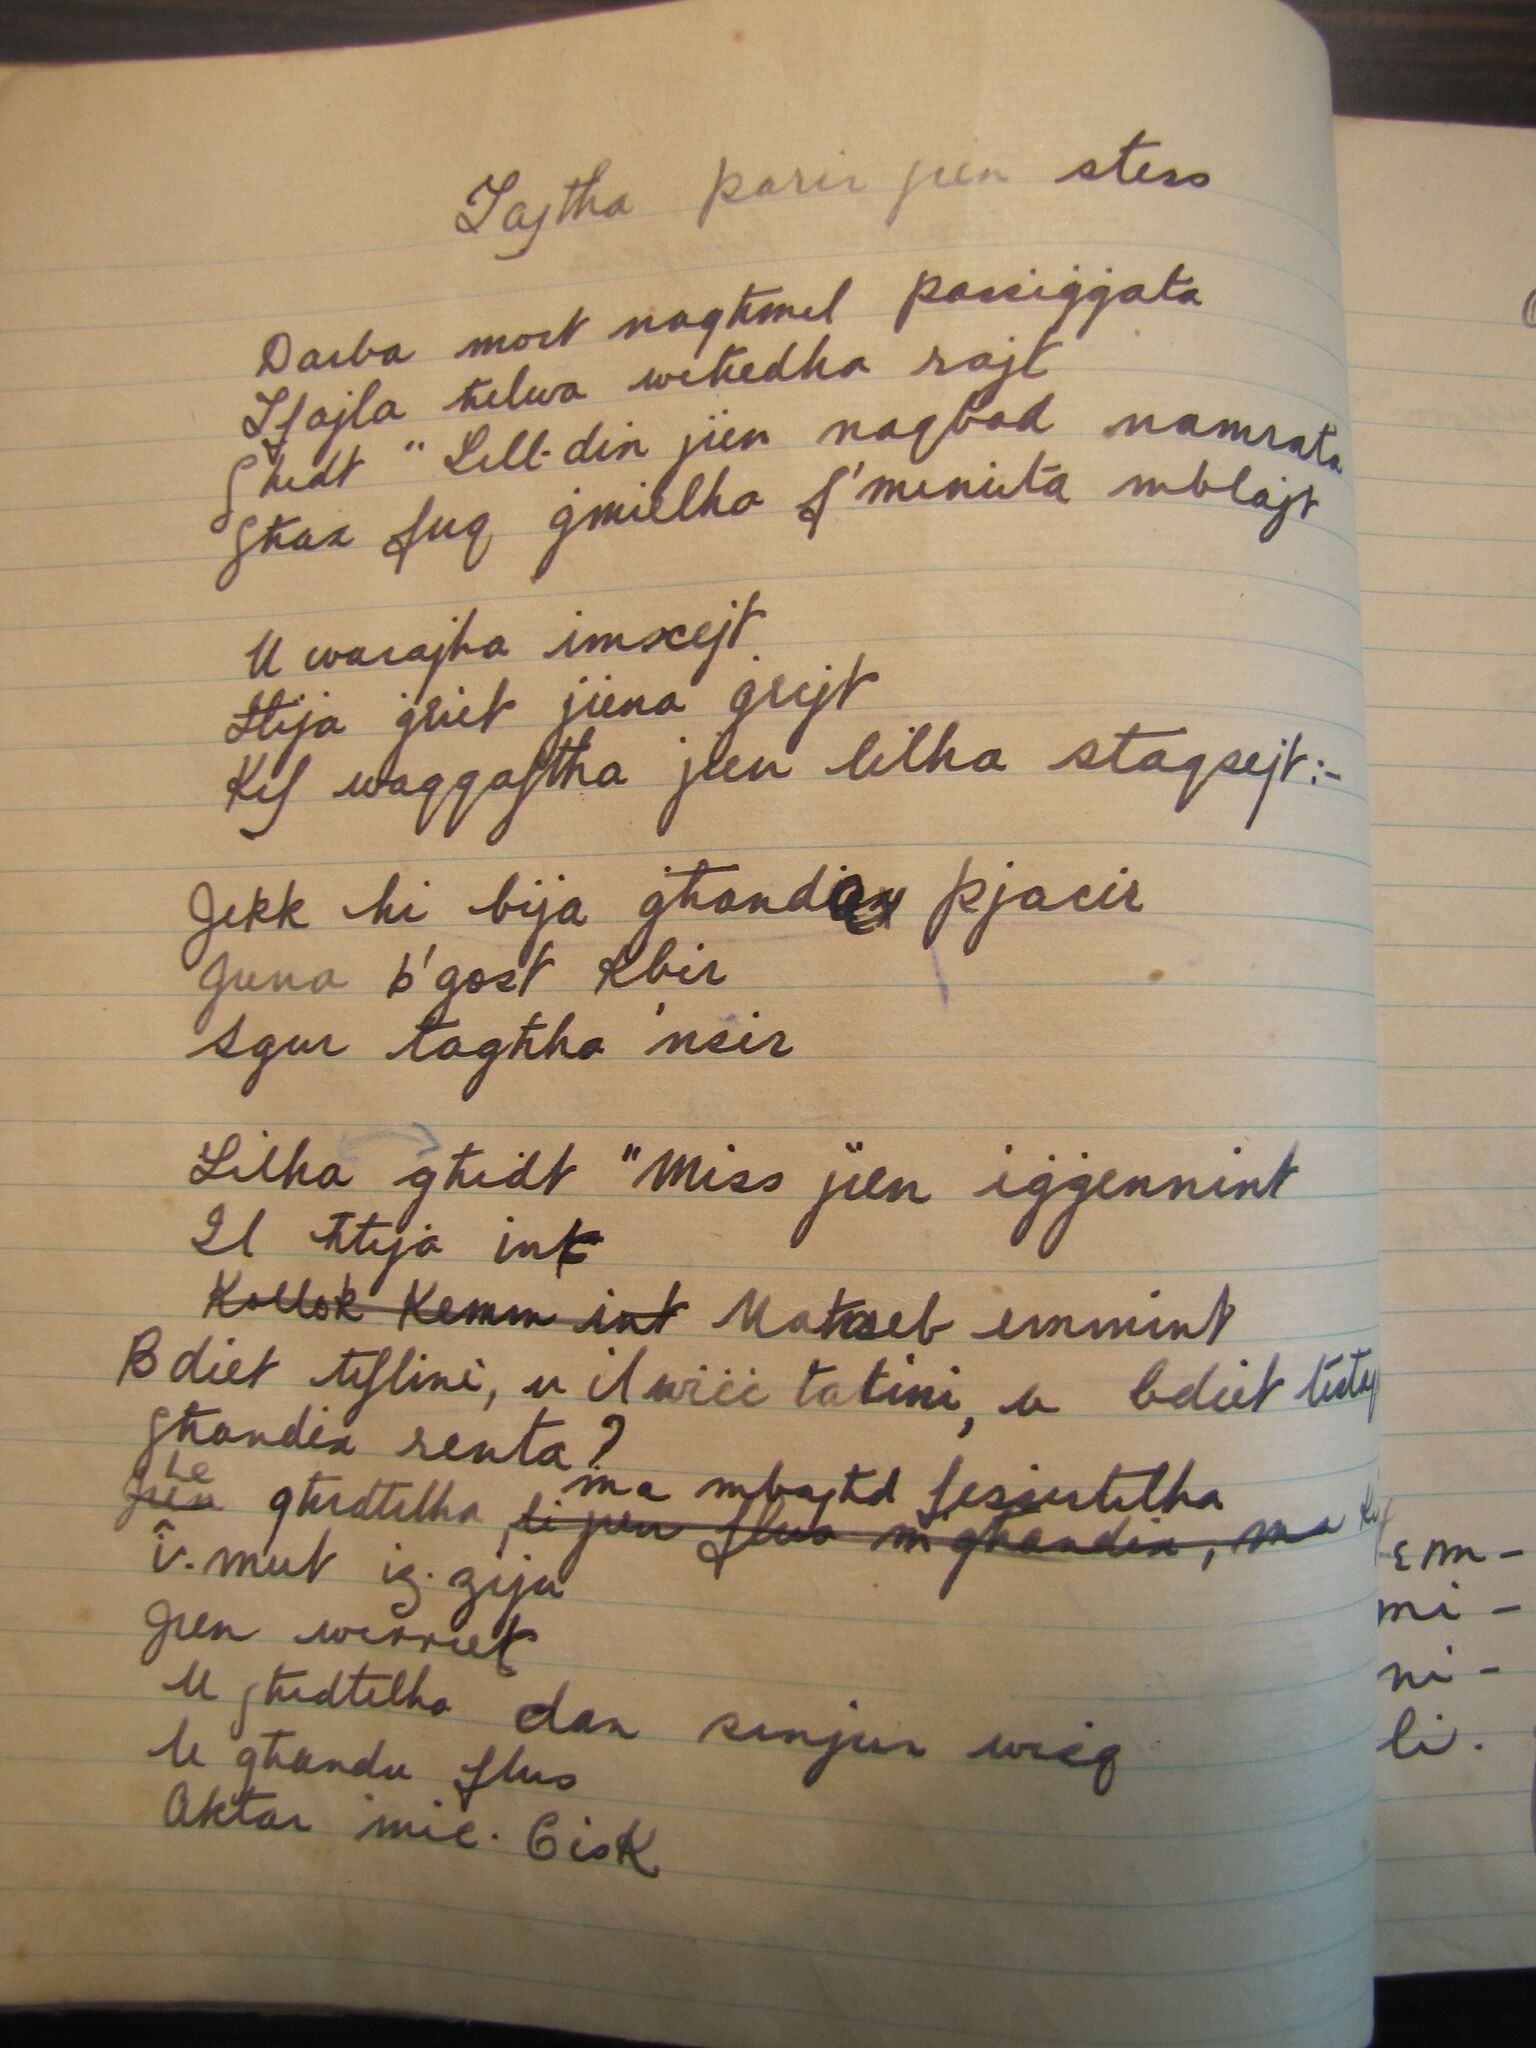 Tajtha parir jien stess
Darba mort nagħmel passiġġata
Tfajla ħelwa weħedha rajt
Għedt "Lill-din jien naqbad namrata
Għax fuq ġmielha f'menuta mblajt
U warajha imxejt
Hija ġriet jiena ġrejt
Kif waqqaftha jien lilha staqsejt:-
Jekk hi bija għandiex pjacir
Jiena b'gost kbir
Sgur tagħha 'nsir
Lilha għidt "Miss jien iġġennint
Il ħtija int
Kollok Kemm int Maħseb emmint
Bdiet teflini, u il wiċċ tatini, u bdiet
Għandix renta?
Le
Jien għedtilha, ma mbajtd fessirtilha
li jien flus m'għandix, ma
i. mut iz-ziju
Jien werriet
U għedtilha dan sinjur wisq
U għandu flus
Aktar mic. Cisk
em-
mi-
ni-
li.